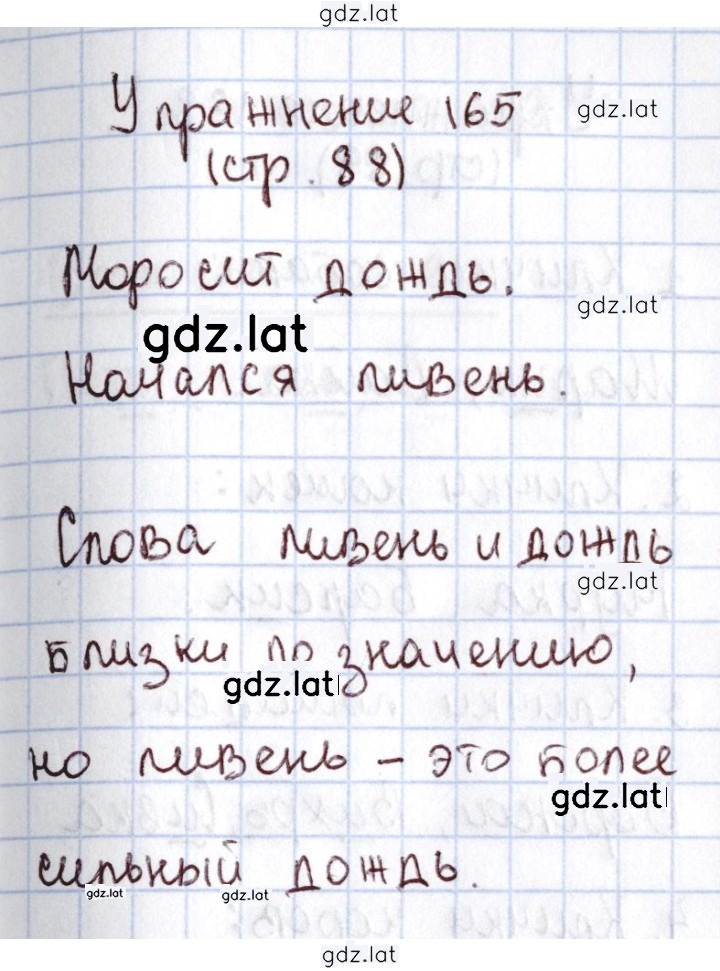 gdz.lat
Упражнение 165
gdz.lat
(стр. 88)
Моросит дождь.
gdz.lat
gdz.lat
Начался ливень.
Слова ливень и дождь
gdz.lat
близки по значению,
gdz.lat
но ливень – это более
gdz.lat
сильный дождь.
gdz.lat
gdz.lat
gdz.lat